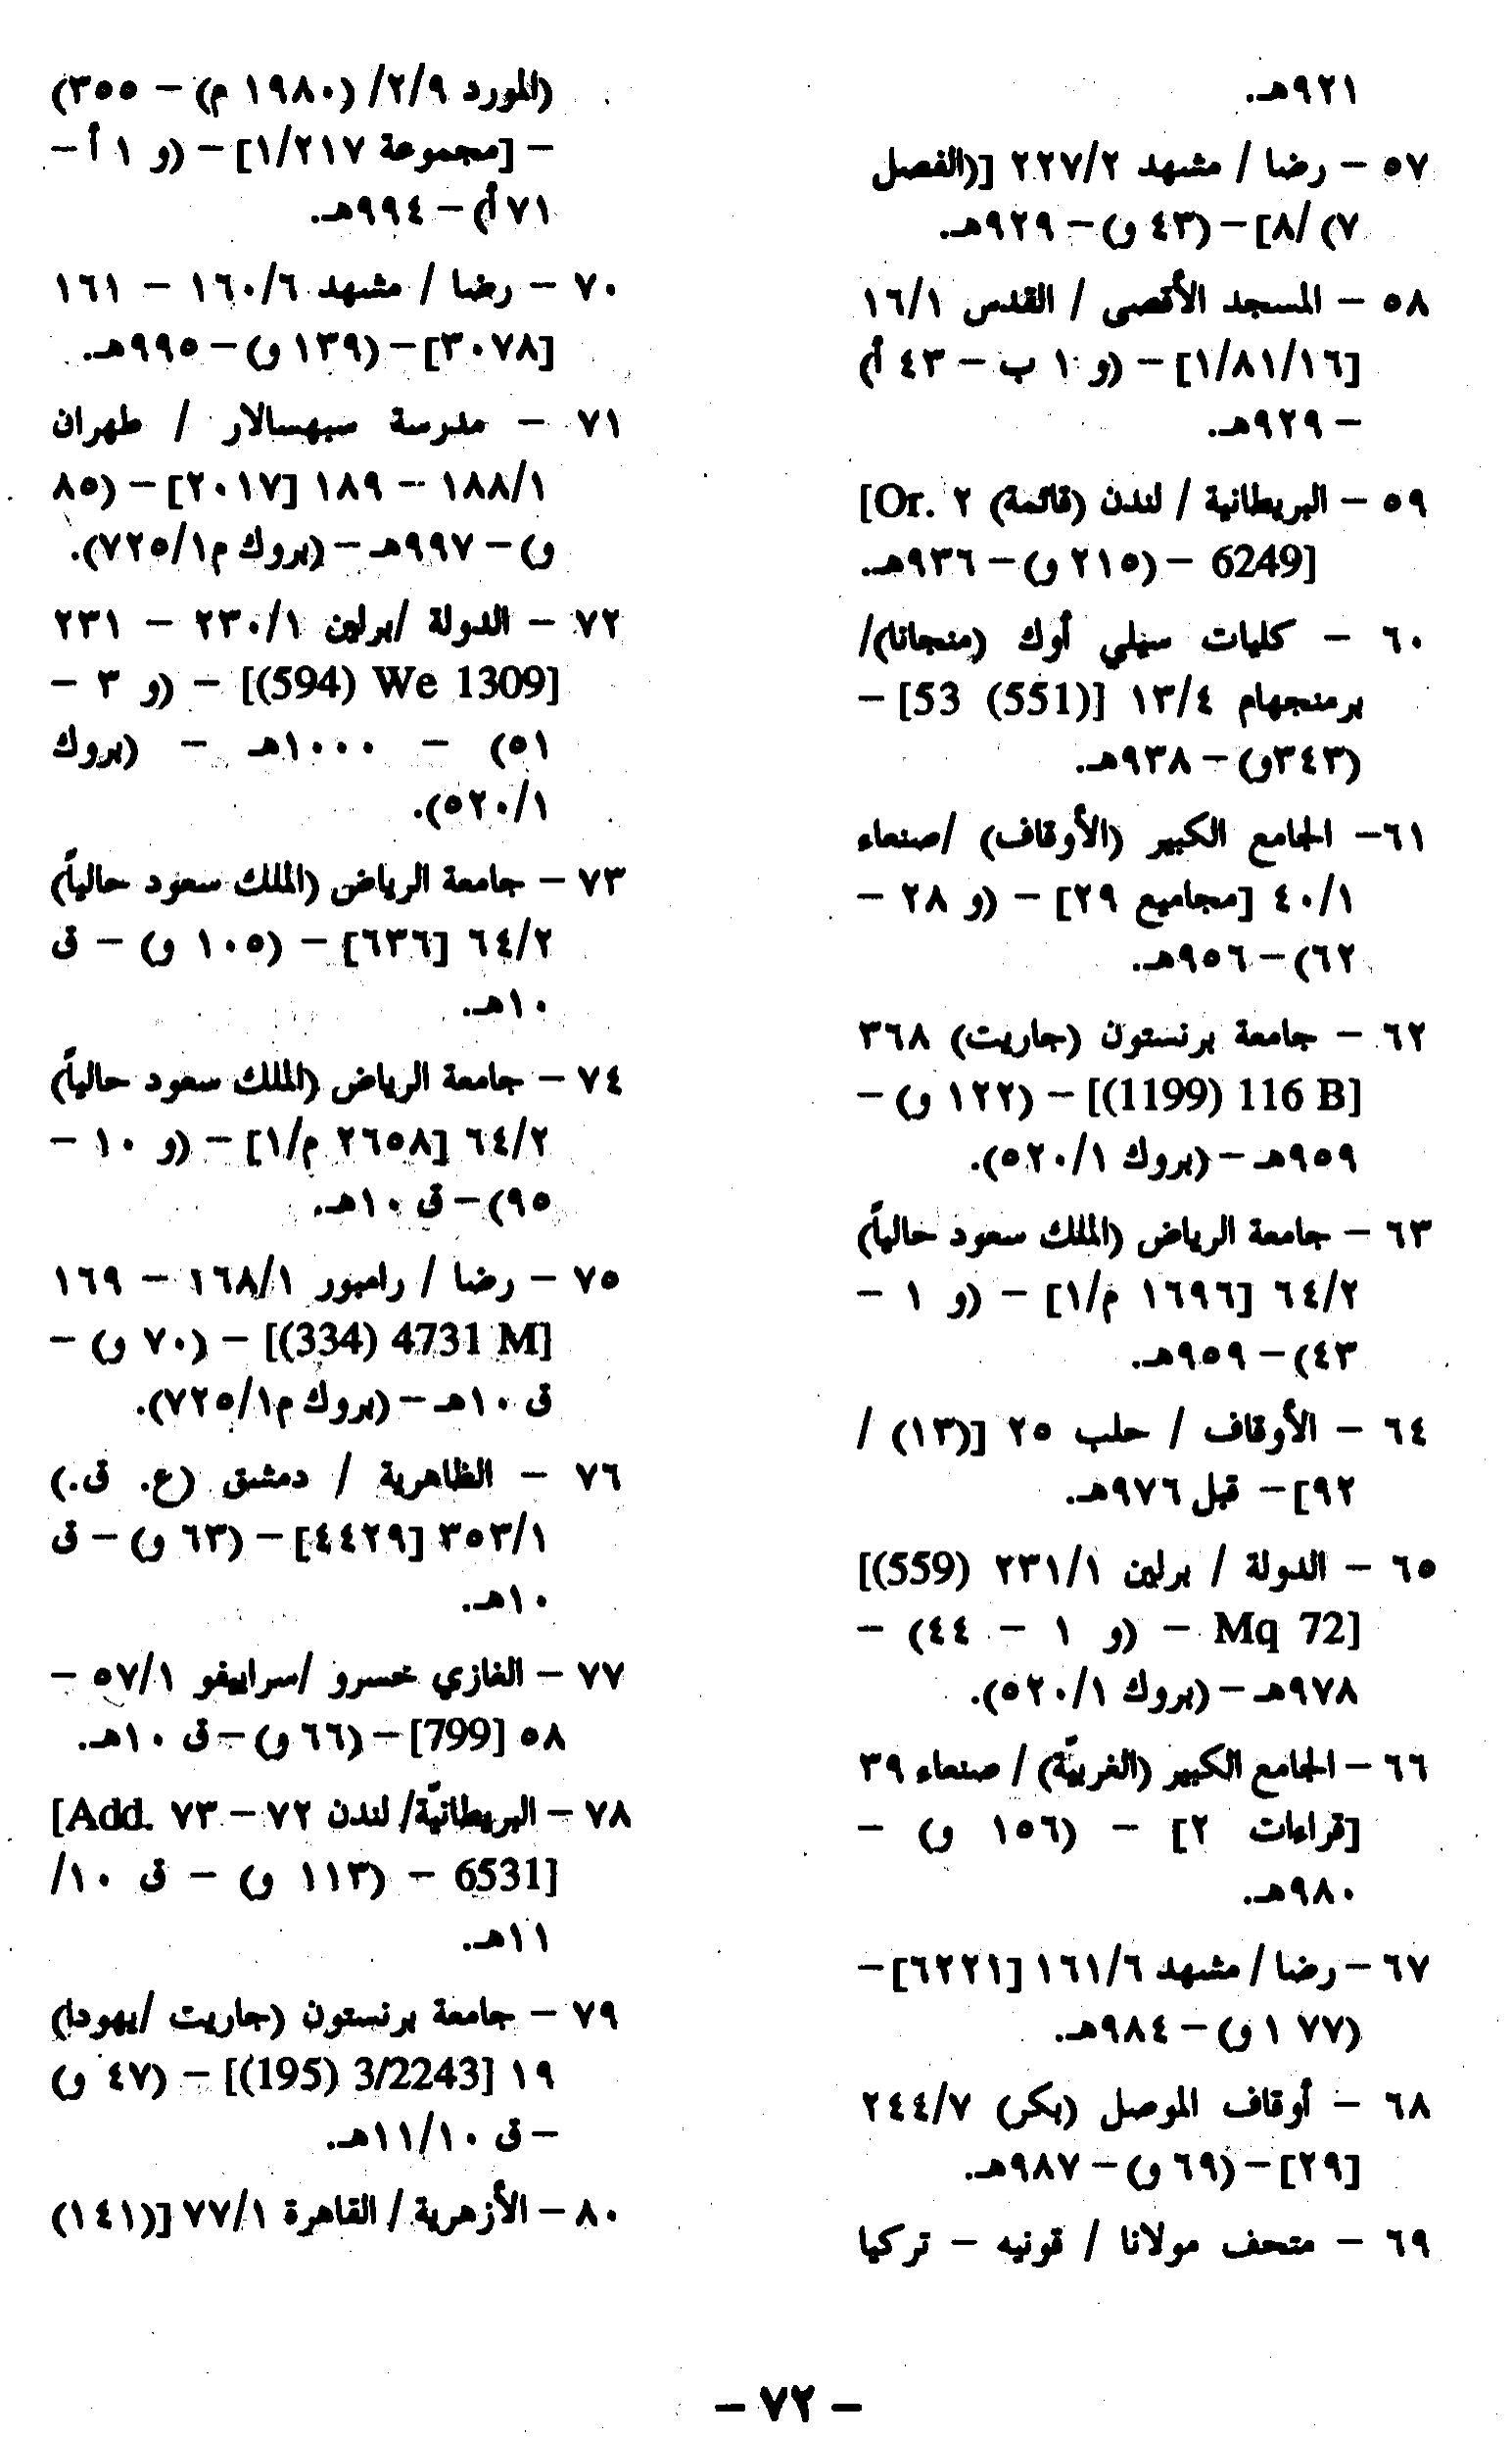 ٩٢١هـ.
٥٧ – رضا / مشهد ٢٢٧/٢ [(الفصل
٧) /٨] – (٤٣ و) – ٩٢٩هـ.
٥٨ – المسجد الأقصى / القدس ١٦/١
[١/٨١/١٦] – (و ١ ب – ٤٣ أ)
– ٩٢٩هـ.
٥٩ – البريطانية / لندن (قائمة) ٢ [Or.
6249] – (٢١٥ و) – ٩٣٦هـ.
٦٠ – كليات سيلي أوك (منجانا)/
برمنجهام ١٣/٤ [53 (551)] –
(٣٤٣و) – ٩٣٨هـ.
٦١– الجامع الكبير (الأوقاف) /صنعاء
٤٠/١ [مجاميع ٢٩] – (و ٢٨ –
٦٢) – ٩٥٦هـ.
٦٢ – جامعة برنستون (جاريت) ٣٦٨
[(1199) 116 B] – (١٢٢ و) –
٩٥٩هـ – (بروك ٥٢٠/١).
٦٣ – جامعة الرياض (الملك سعود حالياً)
٦٤/٢ [١٦٩٦ م/١] – (و ١ –
٤٣) – ٩٥٩هـ.
٦٤ – الأوقاف / حلب ٢٥ [(١٣) /
٩٢] – قبل ٩٧٦هـ.
٦٥ – الدولة / برلين ٢٣١/١ [(559)
Mq 72] – (و ١ – ٤٤) –
٩٧٨هـ – (بروك ٥٢٠/١).
٦٦ – الجامع الكبير (الغربيّة) / صنعاء ٣٩
[قراءات ٢] – (١٥٦ و) –
٩٨٠هـ.
٦٧ – رضا / مشهد ١٦١/٦ [٦٢٢١] –
(١٧٧ و) – ٩٨٤هـ.
٦٨ – أوقاف الموصل (بكر) ٢٤٤/٧
[٢٩] – (٦٩ و) – ٩٨٧هـ.
٦٩ – متحف مولانا / قونيه – تركيا
(المورد ٢/٩/ (١٩٨٠ م) – ٣٥٥)
– [مجموعة ١/٢١٧] – (و ١ أ –
٧١ أ) – ٩٩٤هـ.
٧٠ – رضا / مشهد ١٦٠/٦ – ١٦١
[٣٠٧٨] – (١٣٩ و) – ٩٩٥هـ.
٧١ – مدرسة سبهسالار / طهران
١٨٨/١ – ١٨٩ [٢٠١٧] – (٨٥
و) – ٩٩٧هـ – (بروك م٧٢٥/١).
٧٢ – الدولة /برلين ٢٣٠/١ – ٢٣١
[(594) We 1309] – (و ٣ –
٥١) – ١٠٠٠هـ – (بروك
٥٢٠/١).
٧٣ – جامعة الرياض (الملك سعود حالياً)
٦٤/٢ [٦٣٦] – (١٠٥ و) – ق
١٠هـ.
٧٤ – جامعة الرياض (الملك سعود حالياً)
٦٤/٢ [٢٦٥٨ م/١] – (و ١٠ –
٩٥) – ق ١٠هـ.
٧٥ – رضا / رامبور ١٦٨/١ – ١٦٩
[(334) 4731 M] – (٧٠ و) –
ق ١٠هـ – (بروك م٧٢٥/١).
٧٦ – الظاهرية / دمشق (ع. ق.)
٣٥٣/١ [٤٤٢٩] – (٦٣ و) – ق
١٠هـ.
٧٧ – الغازي خسرو /سراييفو ٥٧/١ –
٥٨ [799] – (٦٦ و) – ق ١٠هـ.
٧٨ – البريطانيّة/ لندن ٧٢ – ٧٣ [Add.
6531] – (١١٣ و) – ق ١٠/
١١هـ.
٧٩ – جامعة برنستون (جاريت /يهودا)
١٩ [(195) 3/2243] – (٤٧ و)
– ق ١١/١٠هـ.
٨٠ – الأزهرية / القاهرة ٧٧/١ [(١٤١)
– ٧٢ –